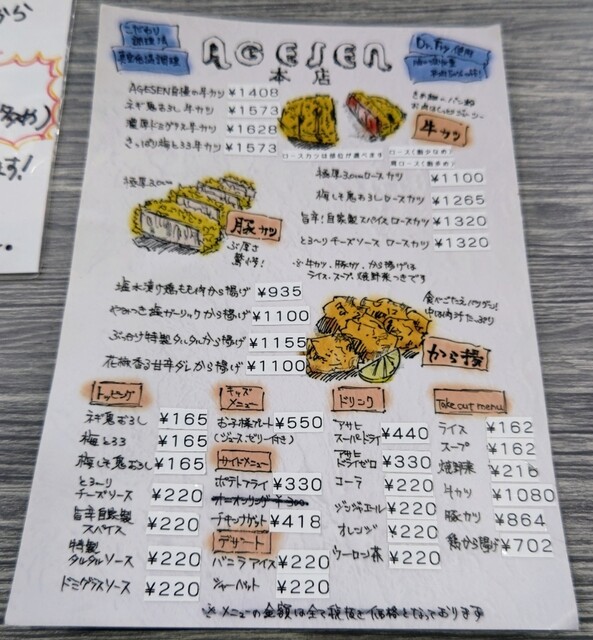 から
ます!
こだわり
調理場
AGESEN
本店
Dr.Fry使用
AGESEN自慢の牛カツ ¥1408
ネギ鬼おろし牛カツ ¥1573
濃厚ドミグラス牛カツ ¥1628
さっぱり梅とろろ牛カツ ¥1573
牛カツ
ロースカツは部位が選べます
ロース(脂少なめ)
肩ロース(脂多め)
極厚3.0cm
極厚3.0cmロースカツ ¥1100
梅しそ鬼おろしロースカツ ¥1265
旨辛!自家製スパイスロースカツ ¥1320
とろ〜りチーズソース ロースカツ ¥1320
豚カツ
ぶ厚さ
驚愕!
※牛カツ、豚カツ、から揚げは
ライス、スープ、焼野菜つきです
塩水漬け鶏もも肉から揚げ ¥935
やみつき塩ガーリックから揚げ ¥1100
ぶっかけ特製タルタルから揚げ ¥1155
花椒香る甘辛ダレから揚げ ¥1100
食べごたえバツグン!
中は肉汁たっぷり
から揚
トッピング
ネギ鬼おろし ¥165
梅とろろ ¥165
梅しそ鬼おろし ¥165
とろ〜り
チーズソース ¥220
旨辛自家製
スパイス ¥220
特製
タルタルソース ¥220
ドミグラスソース ¥220
キッズ
メニュー
お子様プレート ¥550
(ジュース、ゼリー付き)
サイドメニュー
ポテトフライ ¥330
オニオンリング ¥300
チキンナゲット ¥418
デザート
バニラアイス ¥220
シャーベット ¥220
ドリンク
アサヒ
スーパードライ ¥440
アサヒ
ドライゼロ ¥330
コーラ ¥220
ジンジャエール ¥220
オレンジ ¥220
ウーロン茶 ¥220
Take out menu
ライス ¥162
スープ ¥162
焼野菜 ¥216
牛カツ ¥1080
豚カツ ¥864
鶏から揚げ ¥702
※メニューの金額は全て税抜き価格となっております